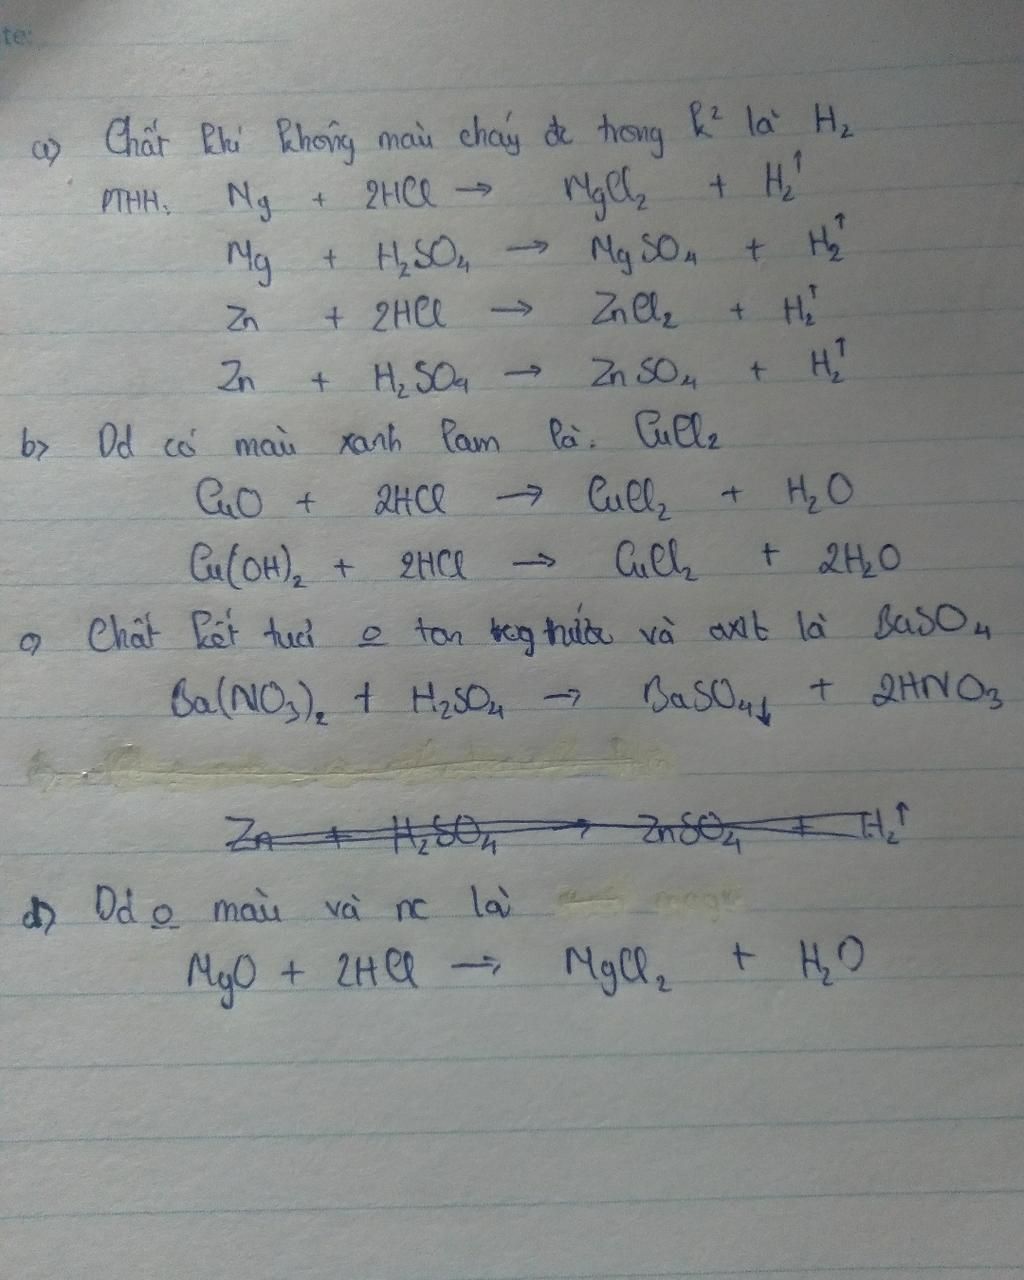 te:
a) Chất khí không màu cháy đc trong k² là H₂
PTHH: Mg + 2HCl → MgCl₂ + H₂↑
Mg + H₂SO₄ → MgSO₄ + H₂↑
Zn + 2HCl → ZnCl₂ + H₂↑
Zn + H₂SO₄ → ZnSO₄ + H₂↑
b) Dd có màu xanh lam là: CuCl₂
CuO + 2HCl → CuCl₂ + H₂O
Cu(OH)₂ + 2HCl → CuCl₂ + 2H₂O
c) Chất kết tủa o tan nước và axit là BaSO₄
Ba(NO₃)₂ + H₂SO₄ → BaSO₄↓ + 2HNO₃
Zn + H₂SO₄ → ZnSO₄ + H₂↑
d) Dd o màu và nc là
MgO + 2HCl → MgCl₂ + H₂O